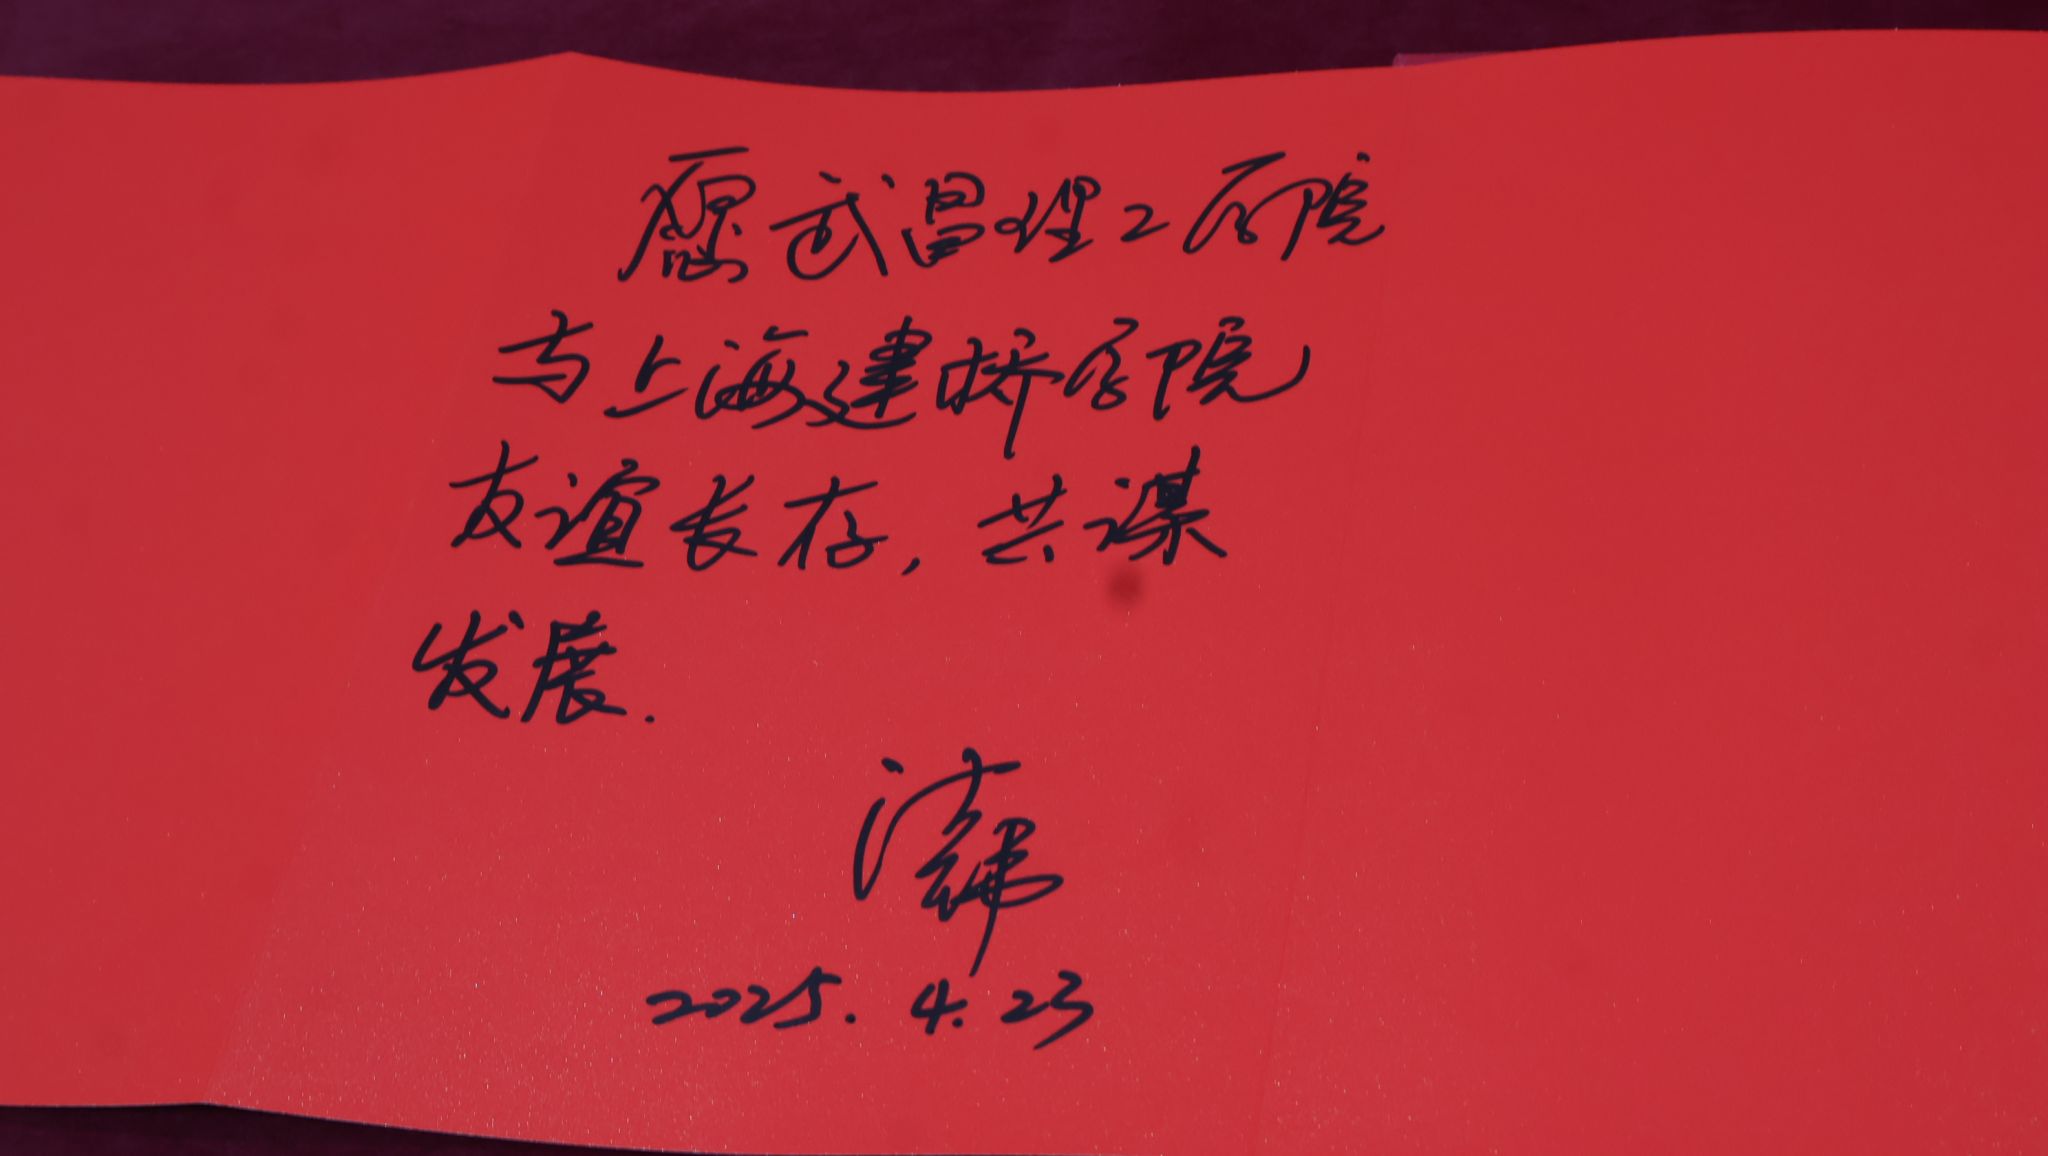 愿武昌理工学院
与上海建桥学院
友谊长存，共谋
发展.
2025.4.23